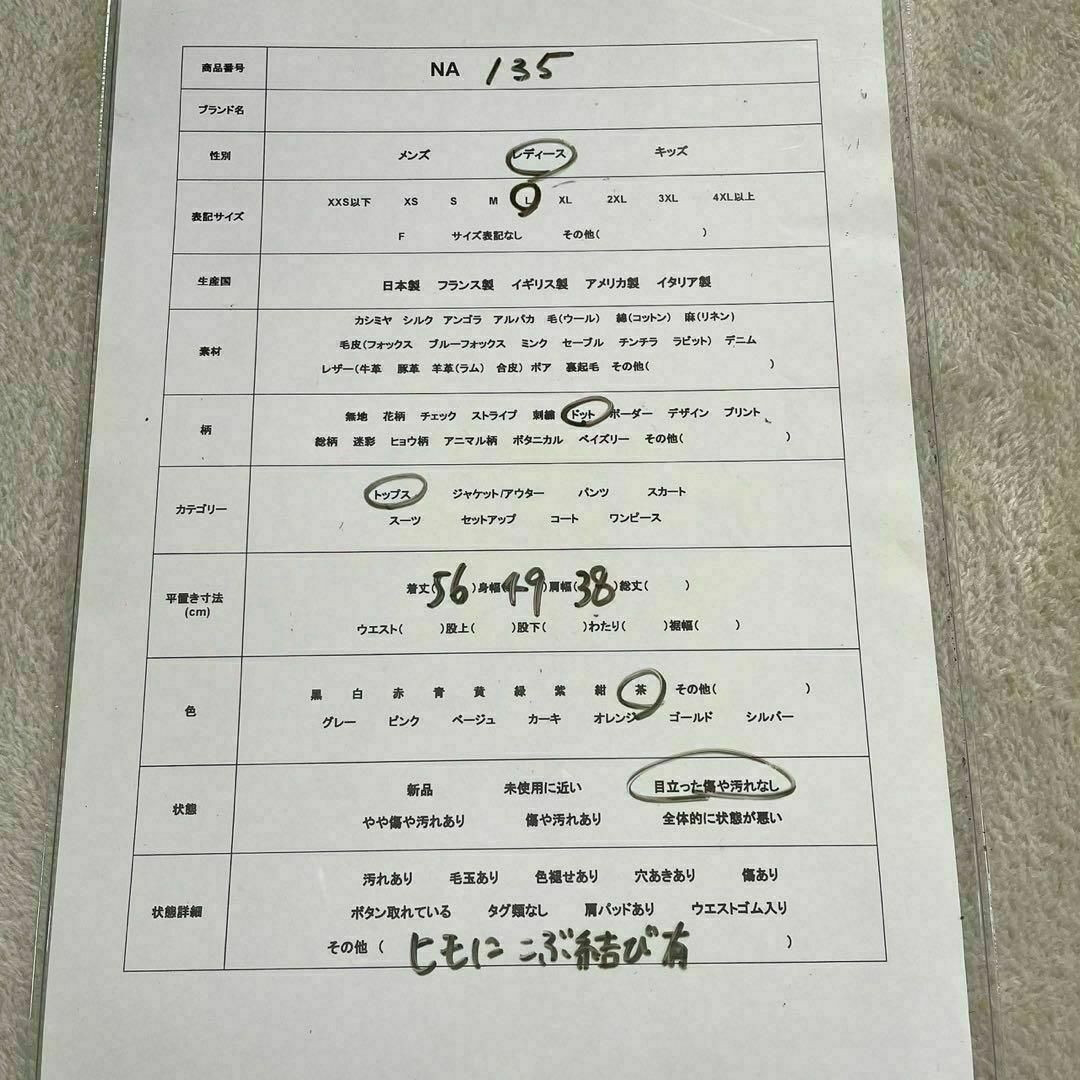 商品番号 NA 135
ブランド名
性別 メンズ レディース キッズ
表記サイズ XXS以下 XS S M L XL 2XL 3XL 4XL以上
F サイズ表記なし その他( )
生産国 日本製 フランス製 イギリス製 アメリカ製 イタリア製
素材 カシミヤ シルク アンゴラ アルパカ 毛(ウール) 綿(コットン) 麻(リネン)
毛皮(フォックス ブルーフォックス ミンク セーブル チンチラ ラビット) デニム
レザー(牛革 豚革 羊革(ラム) 合皮) ボア 裏起毛 その他( )
柄 無地 花柄 チェック ストライプ 刺繍 ドット ボーダー デザイン プリント
総柄 迷彩 ヒョウ柄 アニマル柄 ボタニカル ペイズリー その他( )
カテゴリー トップス ジャケット/アウター パンツ スカート
スーツ セットアップ コート ワンピース
平置き寸法 (cm) 着丈(56)身幅(49)肩幅(38)総丈( )
ウエスト( )股上( )股下( )わたり( )裾幅( )
色 黒 白 赤 青 黄 緑 紫 紺 茶 その他( )
グレー ピンク ベージュ カーキ オレンジ ゴールド シルバー
状態 新品 未使用に近い 目立った傷や汚れなし
やや傷や汚れあり 傷や汚れあり 全体的に状態が悪い
状態詳細 汚れあり 毛玉あり 色褪せあり 穴あきあり 傷あり
ボタン取れている タグ類なし 肩パッドあり ウエストゴム入り
その他 ( ヒモに こぶ結び有 )